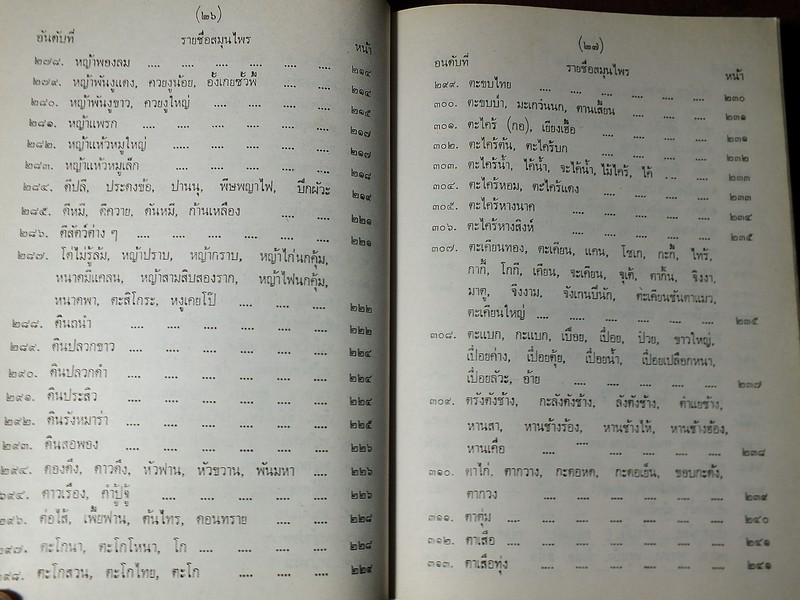 (๒๖)
อันดับที่ รายชื่อสมุนไพร หน้า
๒๗๘. หญ้าพองลม .... .... .... .... .... .... ๒๑๔
๒๗๙. หญ้าพันงูแดง, ควยงูน้อย, อั้งเกยซั้วพื้ .... .... ๒๑๔
๒๘๐. หญ้าพันงูขาว, ควยงูใหญ่ .... .... .... .... ๒๑๕
๒๘๑. หญ้าแพรก .... .... .... .... .... .... ๒๑๗
๒๘๒. หญ้าแห้วหมูใหญ่ .... .... .... .... .... ๒๑๗
๒๘๓. หญ้าแห้วหมูเล็ก .... .... .... .... .... ๒๑๘
๒๘๔. ดีปลี, ประดงข้อ, ปานนุ, พิษพญาไฟ, บีกผัวะ ๒๑๙
๒๘๕. ดีหมี, ดีควาย, ดันหมี, ก้านเหลือง .... .... ๒๒๑
๒๘๖. ดีสัตว์ต่าง ๆ .... .... .... .... .... ๒๒๑
๒๘๗. โด่ไม่รู้ล้ม, หญ้าปราบ, หญ้ากราบ, หญ้าไก่นกคุ้ม,
หนาดมีแคลน, หญ้าสามสิบสองราก, หญ้าไฟนกคุ้ม,
หนาดพา, ตะสิโกระ, หงูเคยโป้ .... .... .... ๒๒๒
๒๘๘. ดินถนำ .... .... .... .... .... .... ๒๒๒
๒๘๙. ดินปลวกขาว .... .... .... .... .... ๒๒๔
๒๙๐. ดินปลวกดำ .... .... .... .... .... ๒๒๔
๒๙๑. ดินประสิว .... .... .... .... .... ๒๒๔
๒๙๒. ดินรังหมาร่า .... .... .... .... .... ๒๒๕
๒๙๓. ดินสอพอง .... .... .... .... .... ๒๒๖
๒๙๔. ดองดึง, ดาวดึง, หัวฟาน, หัวขวาน, พันมหา .... ๒๒๖
๒๙๕. ดาวเรือง, คำปู้จู้ .... .... .... .... .... ๒๒๖
๒๙๖. ต่อไส้, เพี้ยฟาน, ตันไทร, ตอนทราย .... .... ๒๒๘
๒๙๗. ตะโกนา, ตะโกโหนา, โก .... .... .... .... ๒๒๘
๒๙๘. ตะโกสวน, ตะโกไทย, ตะโก .... .... .... ๒๒๙
(๒๗)
อนดับที่ รายชื่อสมุนไพร หน้า
๒๙๙. ตะขบไทย .... .... .... .... .... .... ๒๓๐
๓๐๐. ตะขบป่า, มะเกว๋นนก, ตานเสี้ยน .... .... .... ๒๓๑
๓๐๑. ตะไคร้ (กอ), เชียงเฮื้อ .... .... .... .... ๒๓๑
๓๐๒. ตะไคร้ต้น, ตะไคร้บก .... .... .... .... ๒๓๒
๓๐๓. ตะไคร้น้ำ, ไค้น้ำ, จะไค้น้ำ, ไม้ไคร้, ไค้ .... .... ๒๓๓
๓๐๔. ตะไคร้หอม, ตะไคร้แดง .... .... .... .... ๒๓๓
๓๐๕. ตะไคร้หางนาค .... .... .... .... .... ๒๓๔
๓๐๖. ตะไคร้หางสิงห์ .... .... .... .... .... ๒๓๕
๓๐๗. ตะเคียนทอง, ตะเคียน, แคน, โซเก, กะกี้, ไพร้,
กากี้, โกกี, เคียน, จะเคียน, จูเค้, คาก้น, จิงงา,
มาตู, จืงงาม, จังเกนบีนัก, ตะเคียนชันตาแมว,
ตะเคียนใหญ่ .... .... .... .... .... .... ๒๓๕
๓๐๘. ตะแบก, กะแบก, เบื๋อย, เปื๋อย, ป๋วย, ขาวใหญ่,
เปื๋อยค่าง, เปื๋อยตุ้ย, เปื๋อยน้ำ, เปื๋อยเปลือกหนา,
เปื๋อยลัวะ, อ้าย .... .... .... .... ๒๓๗
๓๐๙. ตรังตังช้าง, กะลังตังช้าง, ลังตังช้าง, ตำแยช้าง,
หานสา, หานช้างร้อง, หานช้างไห้, หานช้างฮ้อง,
หานเดื่อ .... .... .... .... .... ๒๓๘
๓๑๐. ตาไก่, ตากวาง, กะดอหด, กะดอเย็น, ขอบกะด้ง,
ตากวง .... .... .... .... .... .... ๒๓๙
๓๑๑. ตาตุ่ม .... .... .... .... .... .... ๒๔๐
๓๑๒. ตาเสือ .... .... .... .... .... .... ๒๔๑
๓๑๓. ตาเสือทุ่ง .... .... .... .... .... .... ๒๔๑